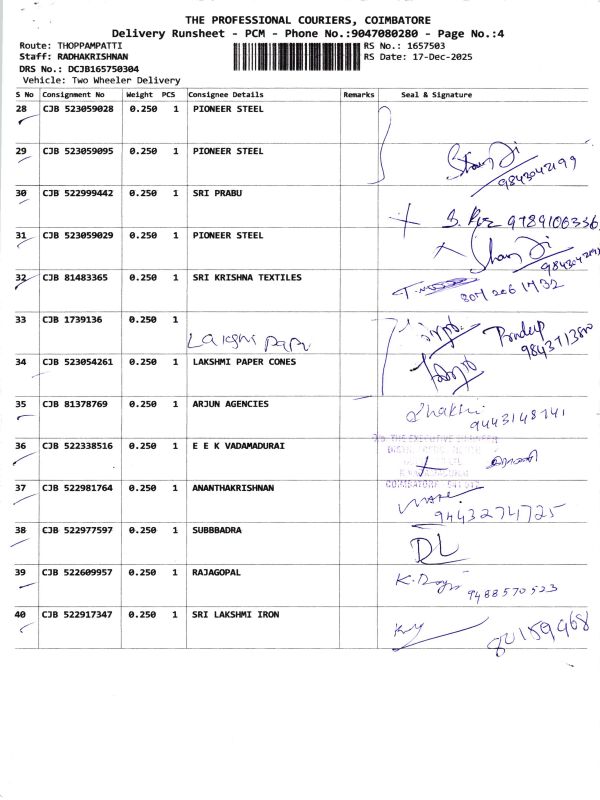 THE PROFESSIONAL COURIERS, COIMBATORE
Delivery Runsheet - PCM - Phone No.:9047080280 - Page No.:4
Route: THOPPAMPATTI
RS No.: 1657503
Staff: RADHAKRISHNAN
RS Date: 17-Dec-2025
DRS No.: DCJB165750304
Vehicle: Two Wheeler Delivery
S No Consignment No Weight PCS Consignee Details Remarks Seal & Signature
28 CJB 523059028 0.250 1 PIONEER STEEL
29 CJB 523059095 0.250 1 PIONEER STEEL
9843042199
30 CJB 522999442 0.250 1 SRI PRABU
9789106336
31 CJB 523059029 0.250 1 PIONEER STEEL
32 CJB 81483365 0.250 1 SRI KRISHNA TEXTILES
33 CJB 1739136 0.250 1
Lakshmi Paper
Pradeep
34 CJB 523054261 0.250 1 LAKSHMI PAPER CONES
35 CJB 81378769 0.250 1 ARJUN AGENCIES
Shakthi
9443148741
36 CJB 522338516 0.250 1 E E K VADAMADURAI
THE EXECUTIVE ENGINEER
COIMBATORE
37 CJB 522981764 0.250 1 ANANTHAKRISHNAN
9443274725
38 CJB 522977597 0.250 1 SUBBBADRA
DL
39 CJB 522609957 0.250 1 RAJAGOPAL
9488570523
40 CJB 522917347 0.250 1 SRI LAKSHMI IRON